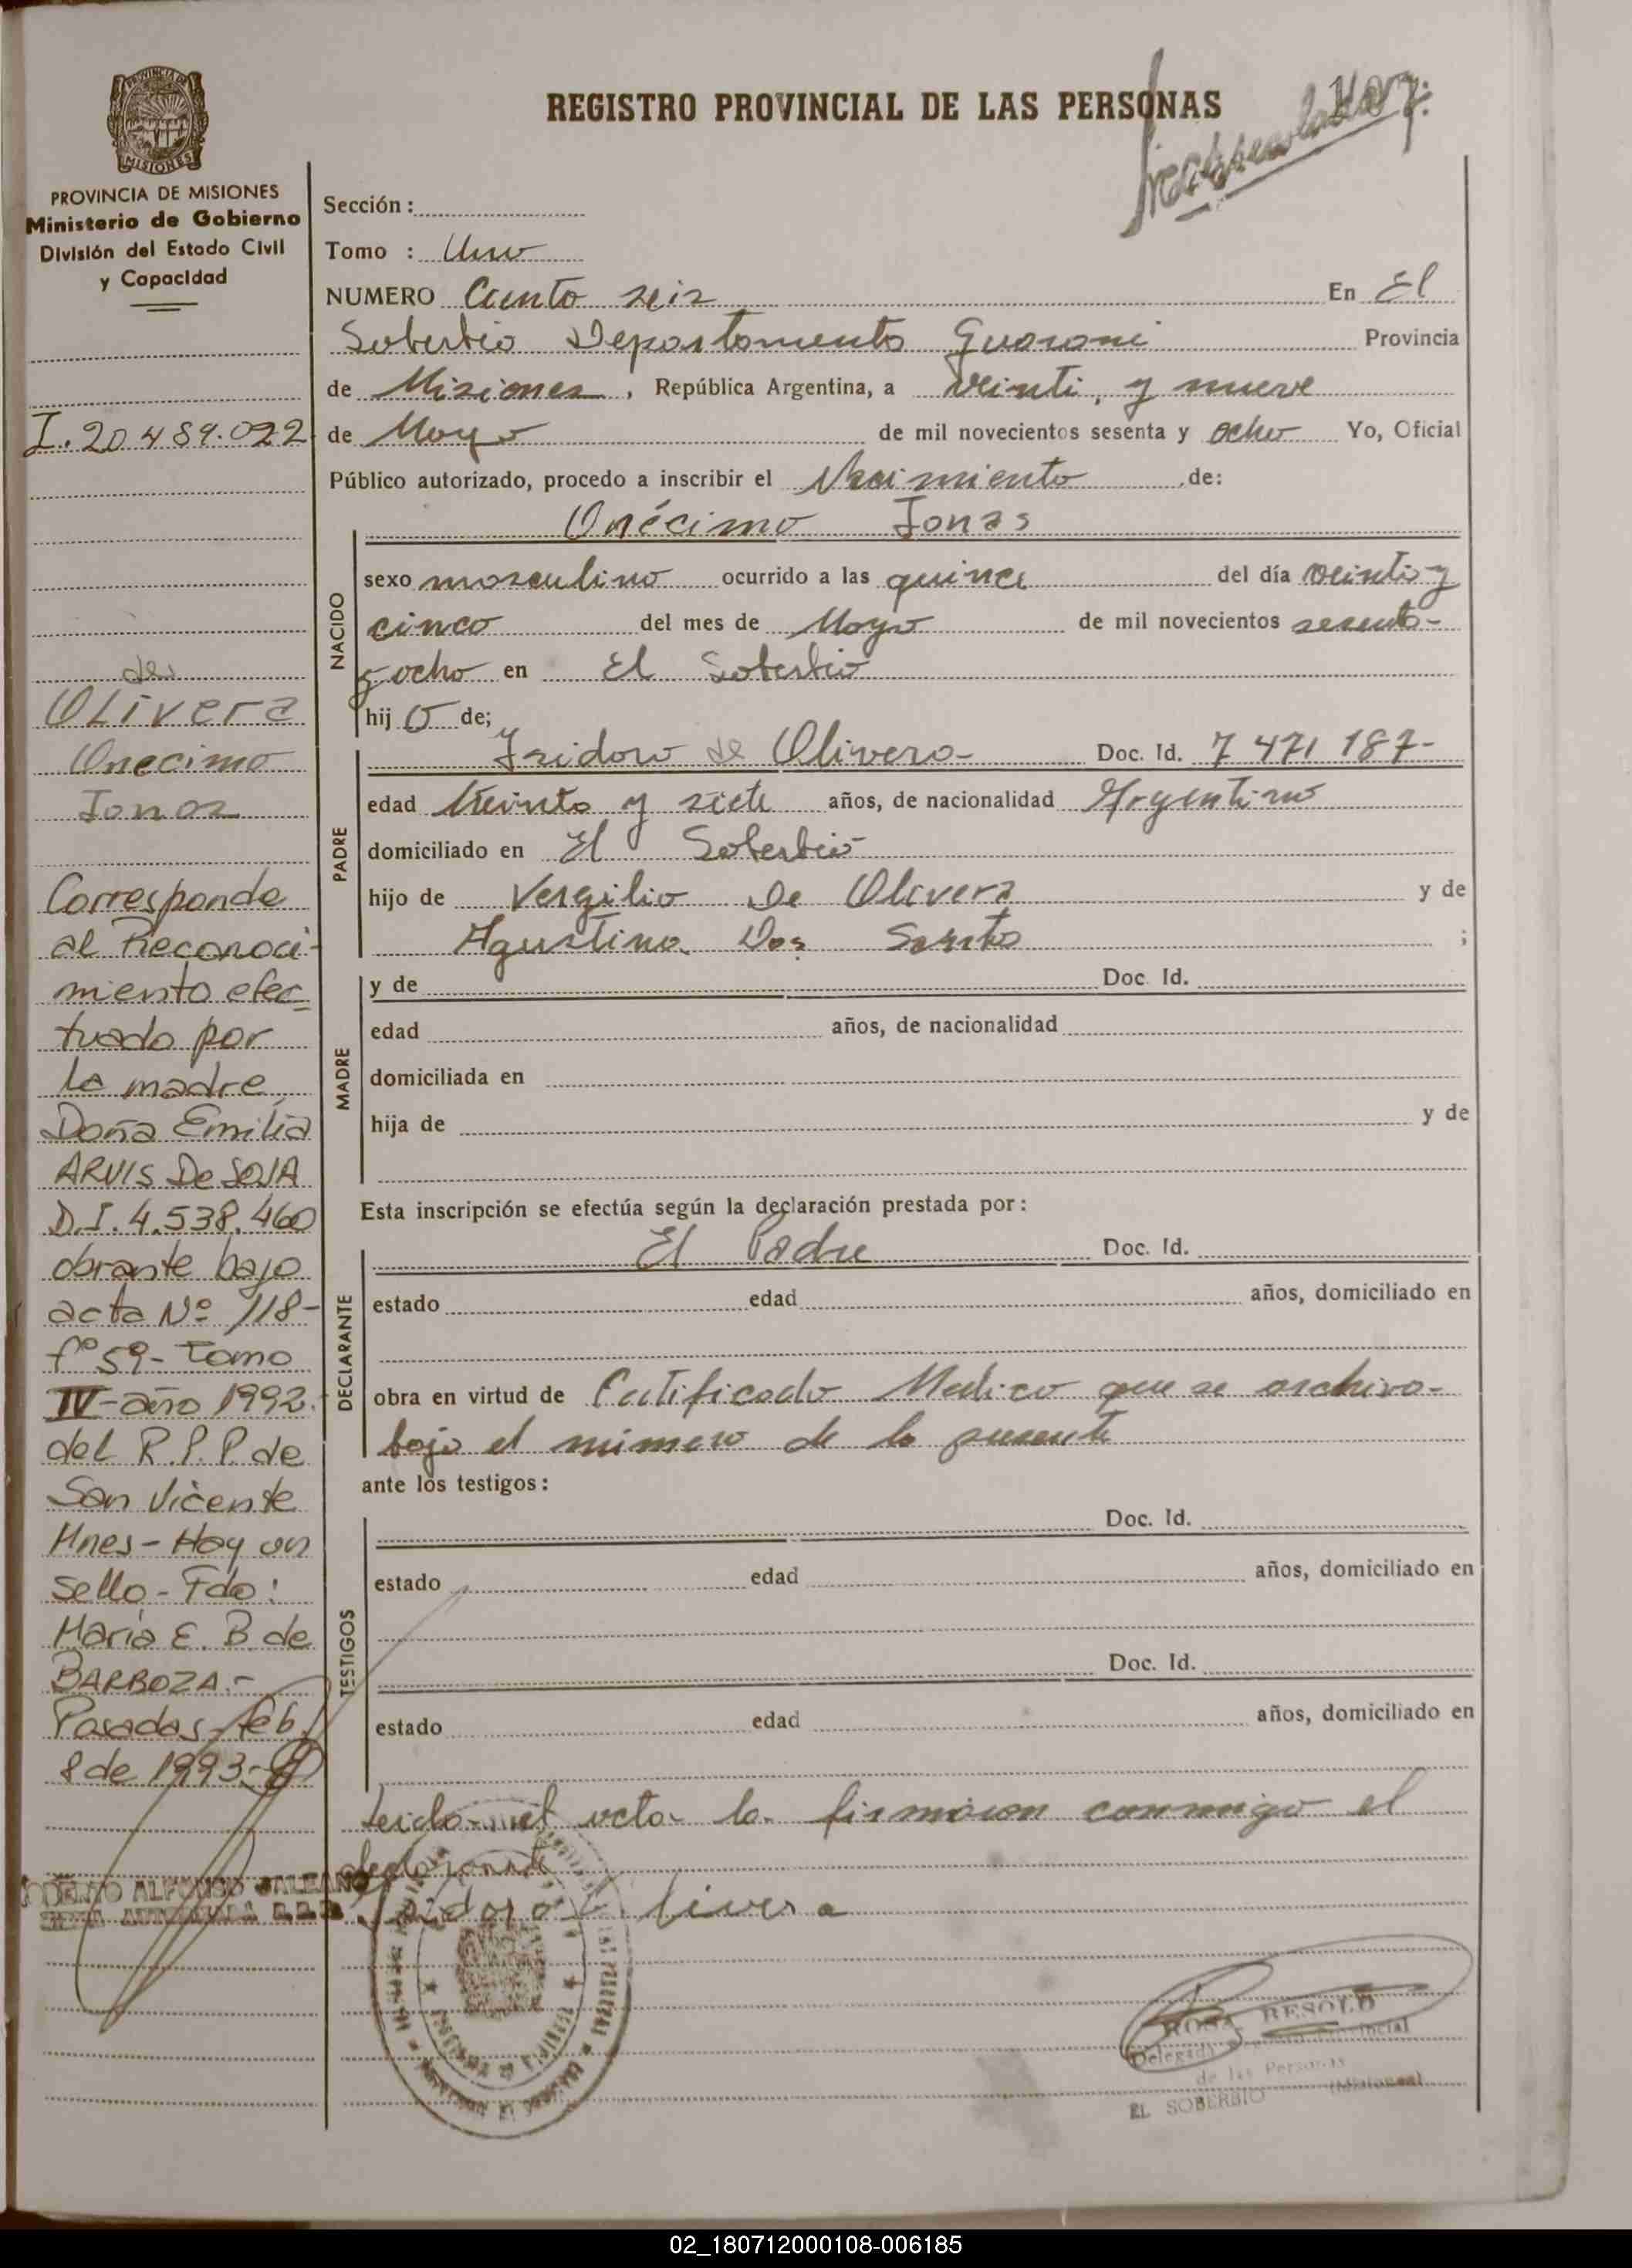 REGISTRO PROVINCIAL DE LAS PERSONAS
PROVINCIA DE MISIONES
Ministerio de Gobierno
División del Estado Civil
y Capacidad
Sección :
Tomo : Uno
NUMERO Ciento seis En El
Soberbio Departamento Guarani Provincia
de Misiones, República Argentina, a Veinti, y nueve
de Mayo de mil novecientos sesenta y ocho Yo, Oficial
Público autorizado, procedo a inscribir el Nacimiento de:
Onécimo Jonas
NACIDO
sexo masculino ocurrido a las quince del día veinti y
cinco del mes de Mayo de mil novecientos sesenta-
y ocho en El Soberbio
hij o de;
PADRE
Isidoro de Olivera- Doc. Id. 7 471 187-
edad treinta y siete años, de nacionalidad Argentino
domiciliado en El Soberbio
hijo de Vergilio De Olivera y de
Agustina Dos Santo ;
MADRE
y de Doc. Id.
edad años, de nacionalidad
domiciliada en
hija de y de
Esta inscripción se efectúa según la declaración prestada por:
DECLARANTE
El Padre Doc. Id.
estado edad años, domiciliado en
obra en virtud de Certificado Medico que se archiva-
bajo el número de la presente
ante los testigos:
TESTIGOS
Doc. Id.
estado edad años, domiciliado en
Doc. Id.
estado edad años, domiciliado en
Leida el acta la firmaron conmigo el
declarante
Isidoro Olivera
ROSA RESOLD
Delegada Registro Provincial
de las Personas
EL SOBERBIO (Misiones)
I. 20.489.022
de
OLivera
Onecimo
Jonas
Corresponde
al Reconoci-
miento efec=
tuado por
la madre,
Doña Emilia
ARVIS De SOSA
D.I. 4.538.460
obrante bajo
acta Nº 118-
fº 59- Tomo
IV- año 1992.
del R.P.P. de
San Vicente
Mnes- Hay un
sello- Fdo:
María E. B. de
BARBOZA.-
Posadas, feb.
8 de 1993.-
02_180712000108-006185